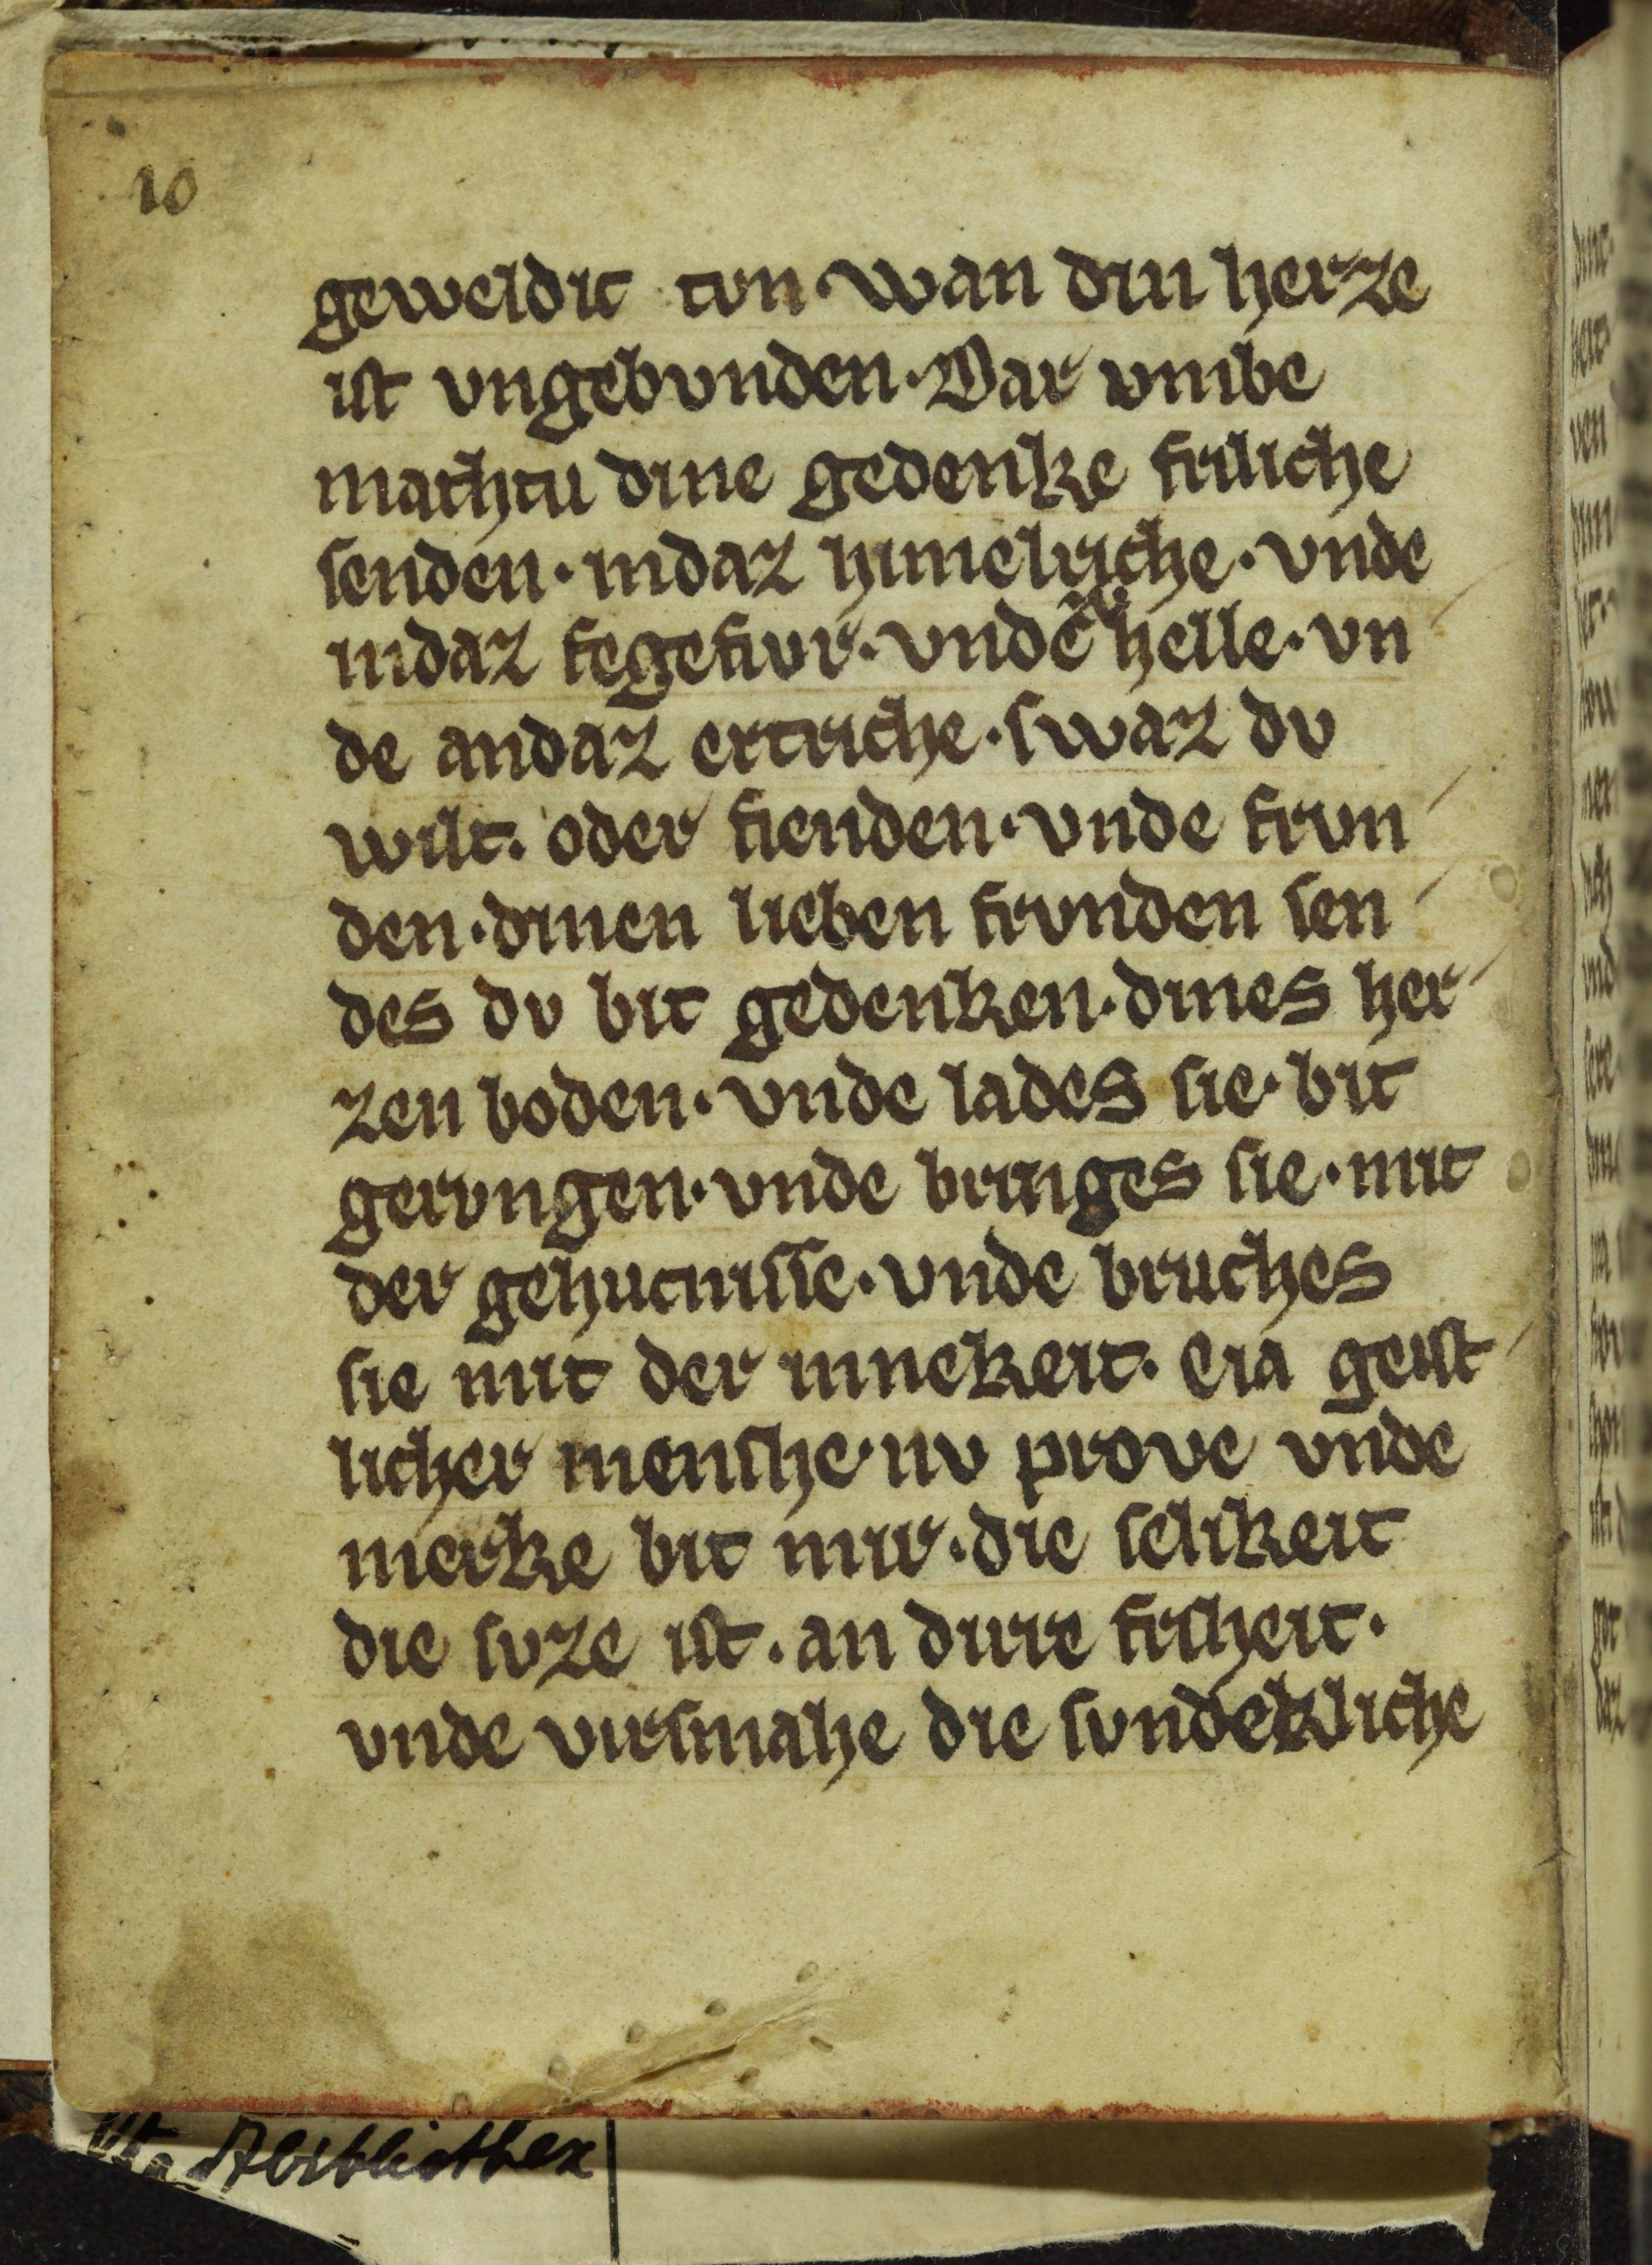 10
geweldit tvn · wan din herze
ist vngebvnden · Dar vmbe
machtu dine gedenke friliche
senden · indaz himelriche · vnde
indaz fegefivr · vnde helle · vn
de andaz ertriche · swaz dv
wilt · oder fienden · vnde frvn
den · dinen lieben frvnden sen
des dv bit gedenken · dines her
zen boden · vnde lades sie · bit
gervngen · vnde bringes sie · mit
der gehucnisse · vnde bruches
sie mit der innekeit · Eia geist
licher mensche · nv prove vnde
merke bit mir · die selikeit
die svze ist · an dirre friheit ·
vnde virsmahe die svndekliche
Stadtbibliothek